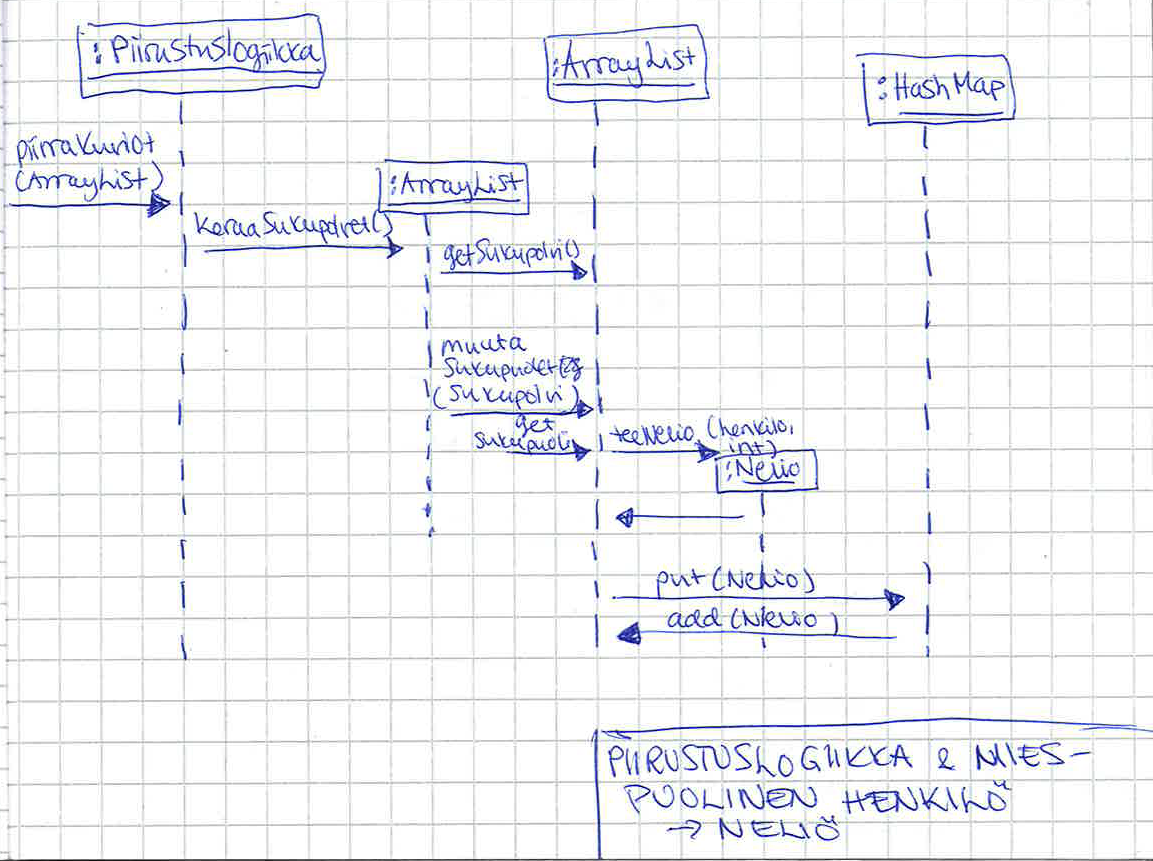 :Piirustuslogiikka
:ArrayList
:HashMap
piirraKuviot
(ArrayList)
:ArrayList
keraaSukupolvet()
getSukupolvi()
muuta
(Sukupolvi)
get
teeNelio (henkilo,
int)
:Nelio
put(Nelio)
add(Nelio)
PIIRUSTUSLOGIIKKA & MIES-
PUOLINEN HENKILÖ
→ NELIÖ